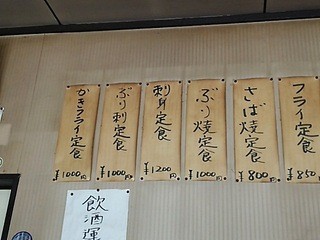 フライ定食
¥850
さば焼定食
¥800円
ぶり焼定食
¥1000円
刺身定食
¥1200円
ぶり刺定食
¥1000円
かきフライ定食
¥1000円
飲酒運